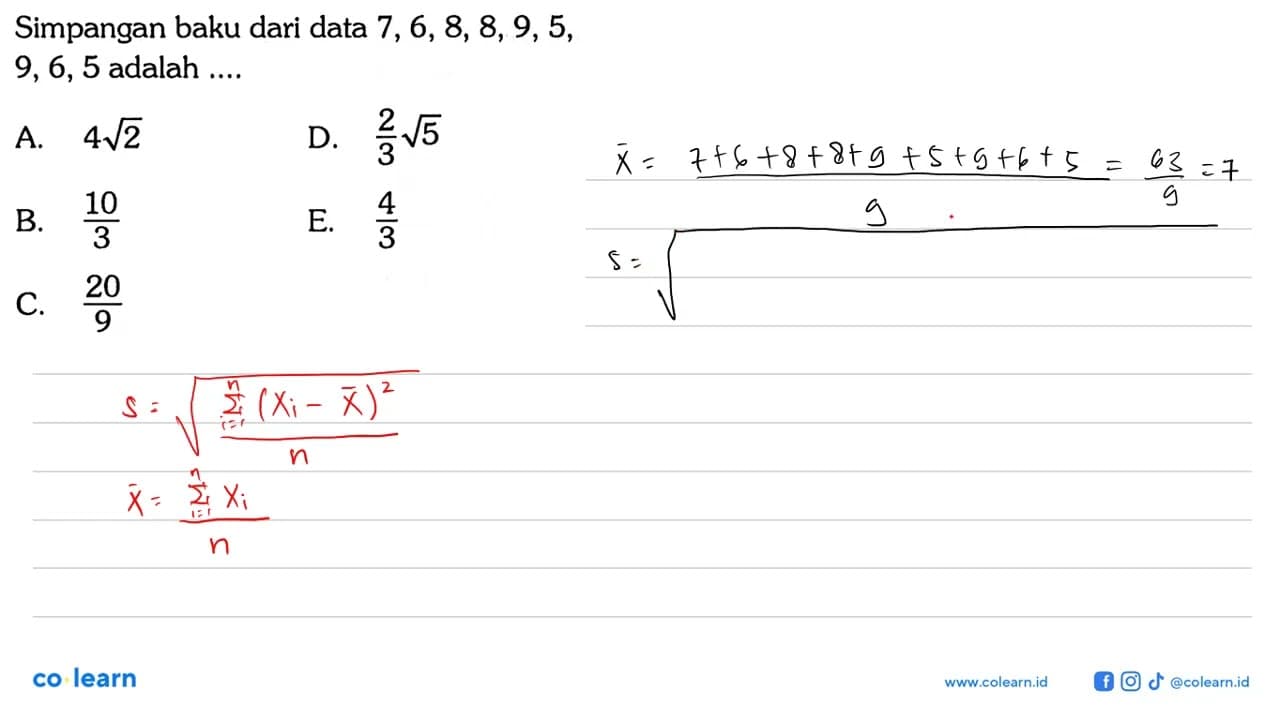 Simpangan baku dari data 7, 6, 8, 8, 9, 5,
9, 6, 5 adalah ....
A. 4√2
B. 10/3
C. 20/9
D. 2/3 √5
E. 4/3
x̄ = (7+6+8+8+9+5+9+6+5)/9 = 63/9 = 7
s = √
s = √(Σ(i=1 n) (xi − x̄)²/n)
x̄ = Σ(i=1 n) xi/n
co learn
www.colearn.id
@colearn.id